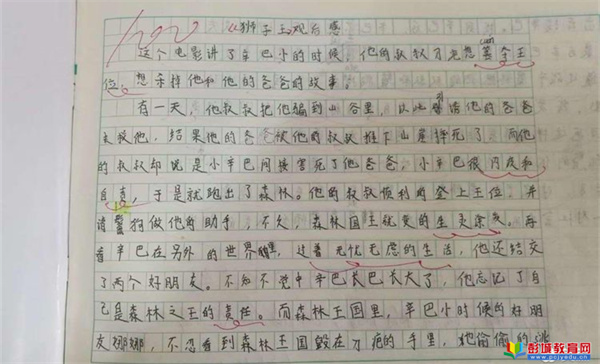 100
《狮子王》观后感
这个电影讲了辛巴小的时候,他的叔叔刀疤想篡夺王
cuàn
位,想杀掉他和他的爸爸的故事。
有一天,他叔叔把他骗到山谷里,以此引诱他的爸爸
去救他,结果他的爸爸被他的叔叔推下山崖摔死了,而他
的叔叔却说是小辛巴间接害死了他爸爸,小辛巴很内疚和
自责,于是就跑出了森林。他的叔叔顺利的登上王位,并
请鬣狗做他的助手,不久,森林国王就变的生灵涂炭。再
看辛巴在另外的世界里,过着无忧无虑的生活,他还结交
了两个好朋友。不知不觉中辛巴长大了,他忘记了自
己是森林之王的责任。而森林王国里,辛巴小时候的好朋
友娜娜,不忍看到森林王国毁在刀疤的手里,她偷偷的逃
彭城教育网
www.pcjyedu.cn